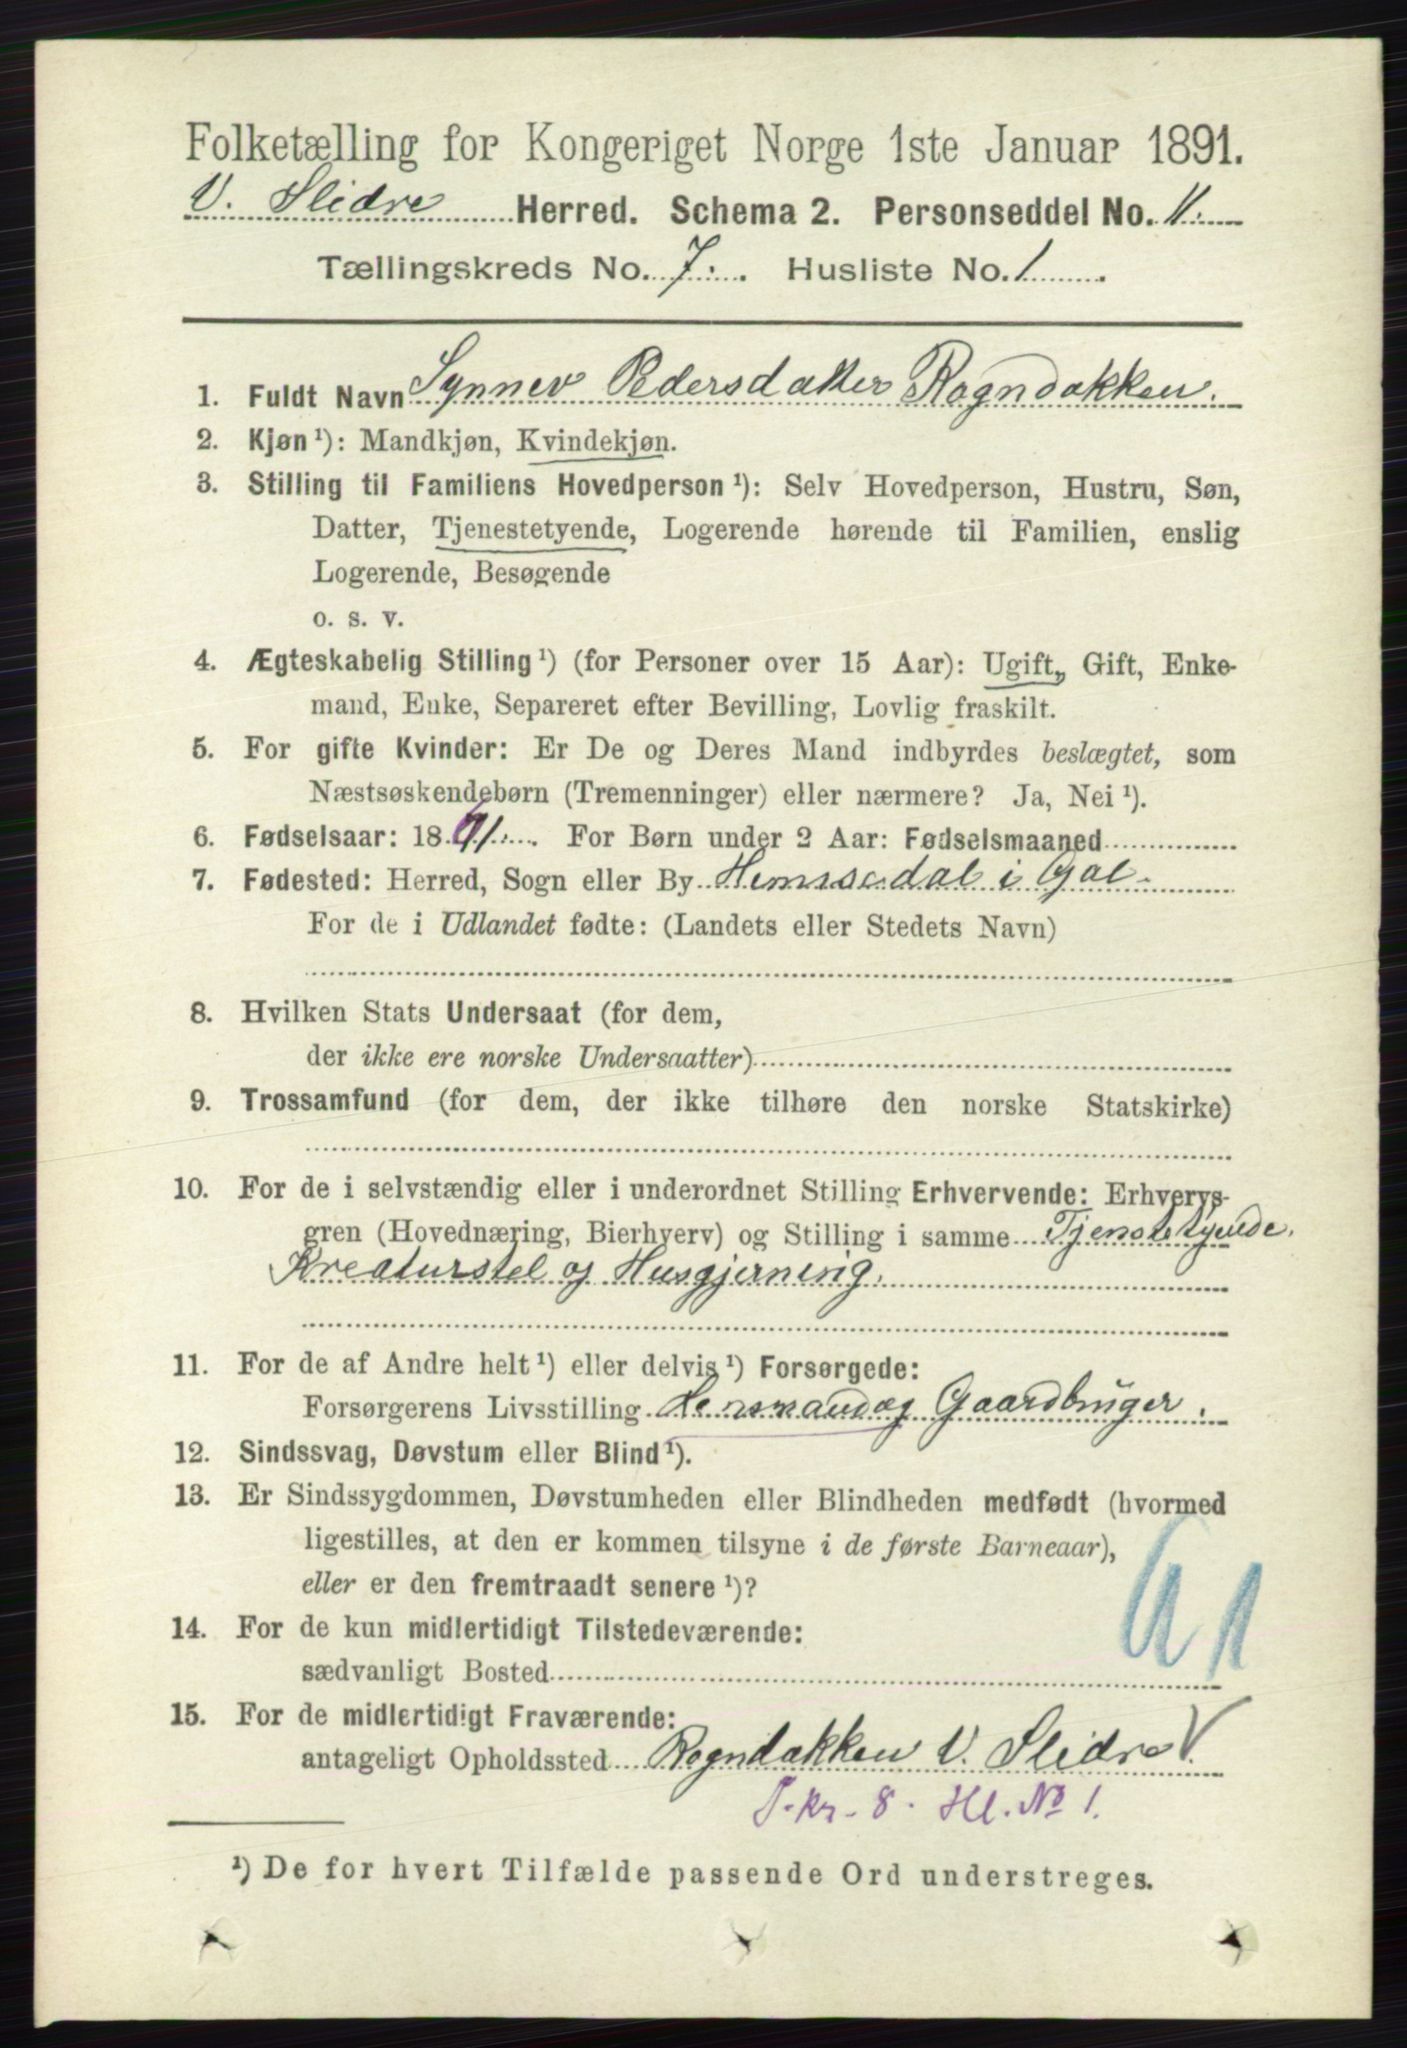 Folketælling for Kongeriget Norge 1ste Januar 1891.
V. Slidre Herred. Schema 2. Personseddel No. 11.
Tællingskreds No. 7. Husliste No. 1
1. Fuldt Navn Synnev Pedersdatter Rogndokken.
2. Kjøn ¹): Mandkjøn, Kvindekjøn.
3. Stilling til Familiens Hovedperson ¹): Selv Hovedperson, Hustru, Søn,
Datter, Tjenestetyende, Logerende hørende til Familien, enslig
Logerende, Besøgende
o. s. v.
4. Ægteskabelig Stilling ¹) (for Personer over 15 Aar): Ugift, Gift, Enke-
mand, Enke, Separeret efter Bevilling, Lovlig fraskilt.
5. For gifte Kvinder: Er De og Deres Mand indbyrdes beslægtet, som
Næstsøskendebørn (Tremenninger) eller nærmere? Ja, Nei ¹).
6. Fødselsaar: 1861. For Børn under 2 Aar: Fødselsmaaned
7. Fødested: Herred, Sogn eller By Hemsedal i Gol.
For de i Udlandet fødte: (Landets eller Stedets Navn)
8. Hvilken Stats Undersaat (for dem,
der ikke ere norske Undersaatter)
9. Trossamfund (for dem, der ikke tilhøre den norske Statskirke)
10. For de i selvstændig eller i underordnet Stilling Erhvervende: Erhvervs-
gren (Hovednæring, Bierhverv) og Stilling i samme Tjenestetyende,
Kreaturstel og Husgjerning.
11. For de af Andre helt ¹) eller delvis ¹) Forsørgede:
Forsørgerens Livsstilling Lensmand og Gaardbruger.
12. Sindssvag, Døvstum eller Blind ¹).
13. Er Sindssygdommen, Døvstumheden eller Blindheden medfødt (hvormed
ligestilles, at den er kommen tilsyne i de første Barneaar),
eller er den fremtraadt senere ¹)?
14. For de kun midlertidigt Tilstedeværende:
sædvanligt Bosted
15. For de midlertidigt Fraværende:
antageligt Opholdssted Rogndokken V. Slidre V.
T.kr. 8. Hl. No 1.
¹) De for hvert Tilfælde passende Ord understreges.